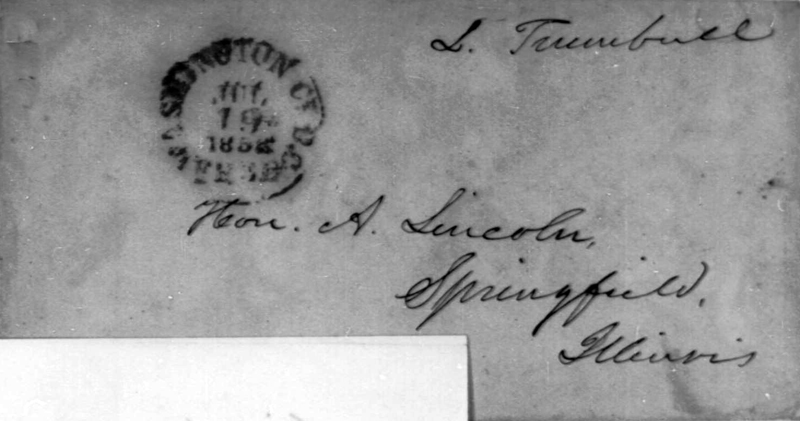 L. Trumbull
WASHINGTON CY. D.C.
JUL
19
FREE
Hon. A. Lincoln,
Springfield,
Illinois